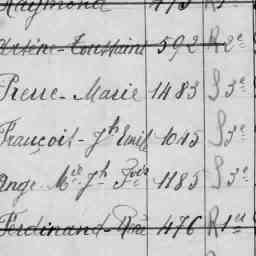 Raymond 475 R 1er
Arsène-Toussaint 592 R 2e
Pierre-Marie 1483 S 3e
François-Jh Emile 1045 S 3e
Ange Mie Jh Fois 1185 S 3e
Ferdinand-René 476 R 1er